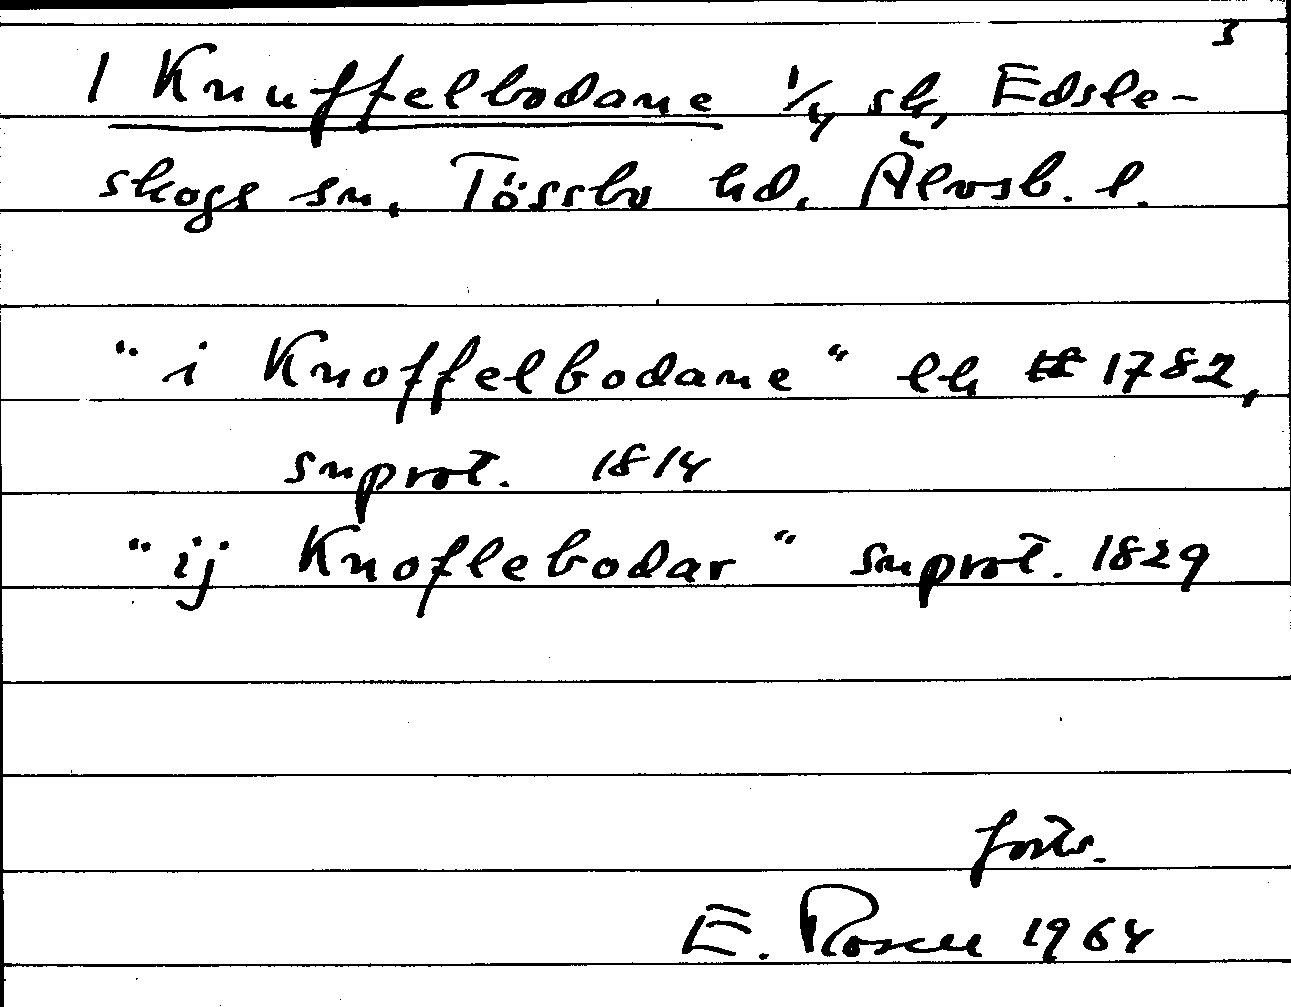 3
I Knuffelbodane 1/4 sk, Edsle-
skogs sn. Tössbo hd. Älvsb. l.
"i Knoffelbodane" lh 1782,
snprot. 1814
"ij Knoflebodar" snprot. 1829
forts.
E. Rosell 1964